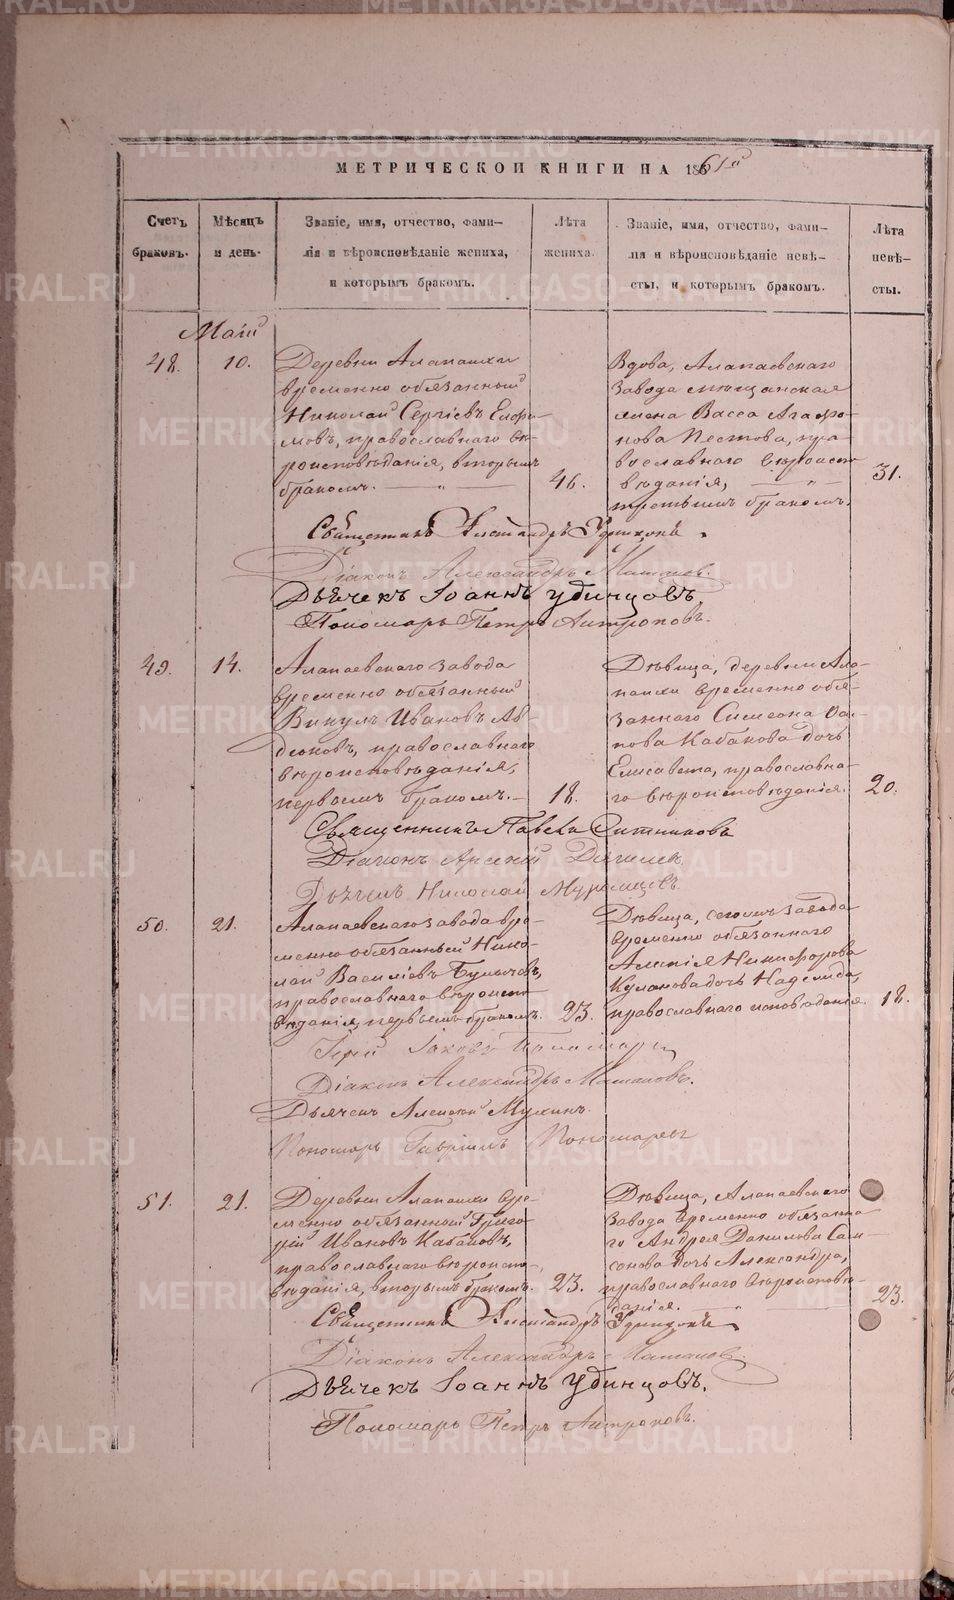 МЕТРИЧЕСКОЙ КНИГИ НА 1861й
Счетъ браковъ.
Мѣсяцъ и день.
Званіе, имя, отчество, фами-
лія и вѣроисповѣданіе жениха,
и которымъ бракомъ.
Лѣта
жениха.
Званіе, имя, отчество, фами-
лія и вѣроисповѣданіе невѣ-
сты, и которымъ бракомъ.
Лѣта
невѣ-
сты.
Маій
48. 10.
Деревни Алапаихи
временно обязанный
Николай Сергіевъ
православнаго вѣ-
роисповѣданія, вторымъ
бракомъ. — " —
46.
Вдова, Алапаевскаго
завода мѣщанская
жена Васса Агафо-
нова Пестова, пра-
вославнаго вѣроиспо-
вѣданія, — " —
третьимъ бракомъ.
31.
Священникъ Александръ
Діаконъ Александръ
Дьячекъ Іоаннъ Удинцовъ
Пономарь Петръ Антроповъ.
49. 14.
Алапаевскаго завода
временно обязанный
Викулъ Ивановъ Ав-
деюковъ, православнаго
вѣроисповѣданія,
первымъ бракомъ. —
18.
Дѣвица, деревни Ала-
паихи временно обя-
заннаго Симеона
Кабакова дочь
Елисавета, православна-
го вѣроисповѣданія.
20.
Священникъ Павелъ Ситниковъ
Діаконъ Арсеній Дягилевъ
Дьячекъ Николай Муромцевъ.
50. 21.
Алапаевскаго завода вре-
менно обязанный Нико-
лай Василіевъ Булычовъ,
православнаго вѣроиспо-
вѣданія, первымъ бракомъ.
23.
Дѣвица, сегожъ завода
временно обязаннаго
Алексія Никифорова
Кулакова дочь Надежда,
православнаго исповѣданія.
18.
Іерей Іаковъ Пономаревъ
Діаконъ Александръ
Дьячекъ Алексѣй Мухинъ.
Пономарь Гавріилъ Пономаревъ
51. 21.
Деревни Алапаихи вре-
менно обязанный Григо-
рій Ивановъ Кабаковъ,
православнаго вѣроиспо-
вѣданія, вторымъ бракомъ.
23.
Дѣвица, Алапаевскаго
завода временно обязанна-
го Андрея Данилова Сам-
сонова дочь Александра,
православнаго вѣроисповѣ-
данія. — " —
23.
Священникъ Александръ
Діаконъ Александръ
Дьячекъ Іоаннъ Удинцовъ.
Пономарь Петръ Антроповъ.
METRIKI.GASO-URAL.RU